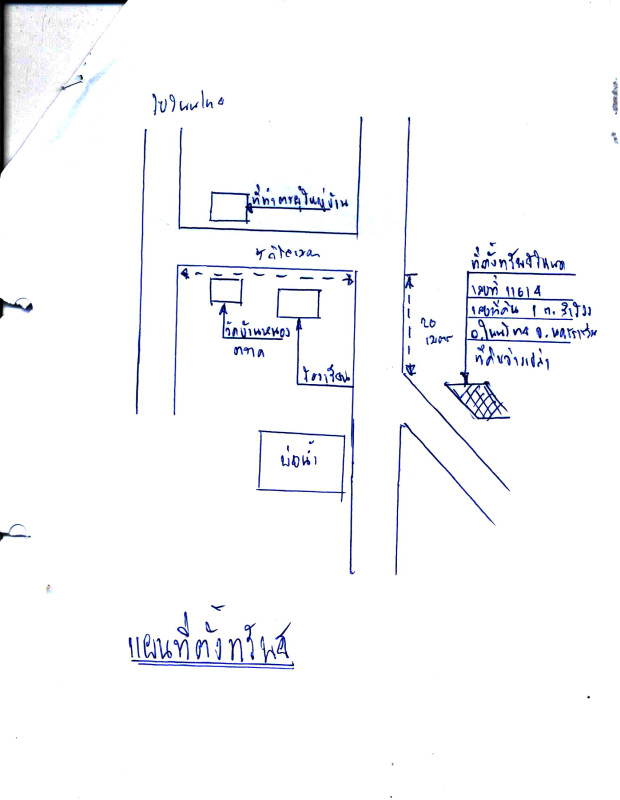 ไปโนนไทย
ที่ทำการผู้ใหญ่บ้าน
1 กิโลเมตร
วัดบ้านหนอง
โรงเรียน
บ่อน้ำ
20
เมตร
ที่ตั้งทรัพย์โฉนด
เลขที่ 11614
เลขที่ดิน 1 ต. สำโรง
อ.โนนไทย จ. นครราชสีมา
ที่ดินว่างเปล่า
แผนที่ตั้งทรัพย์